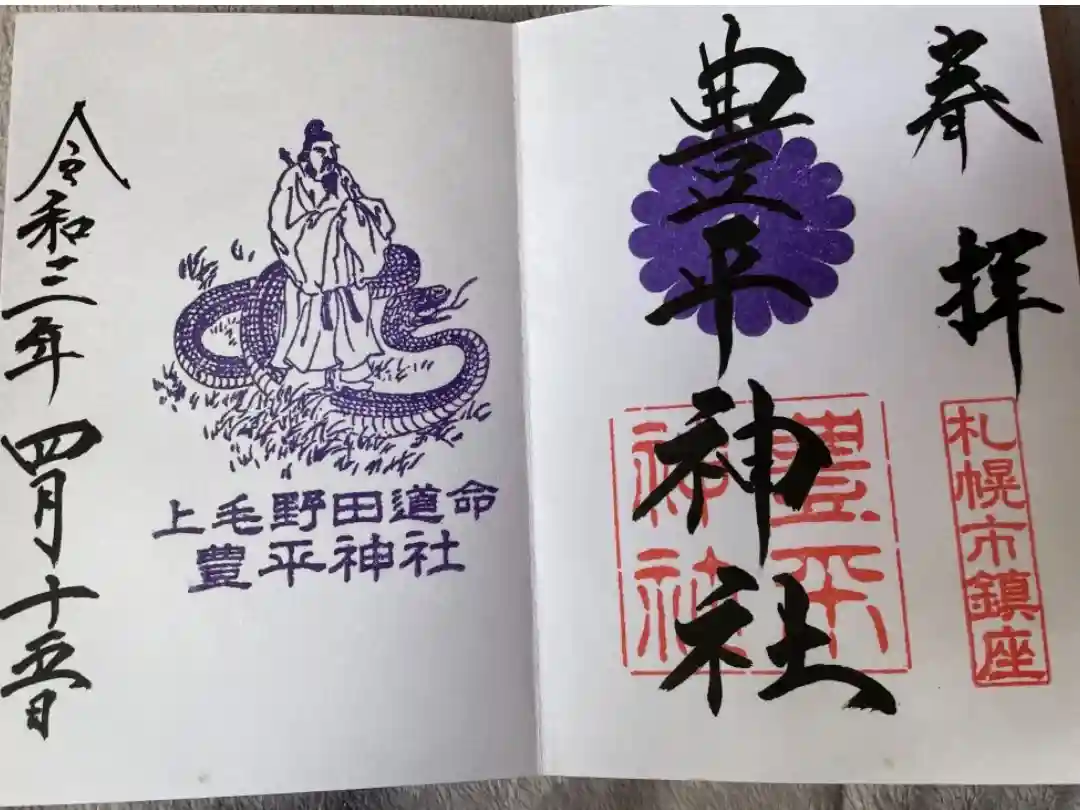 奉拝
札幌市鎮座
豊平神社
豊平
神社
上毛野田道命
豊平神社
令和三年四月十五日